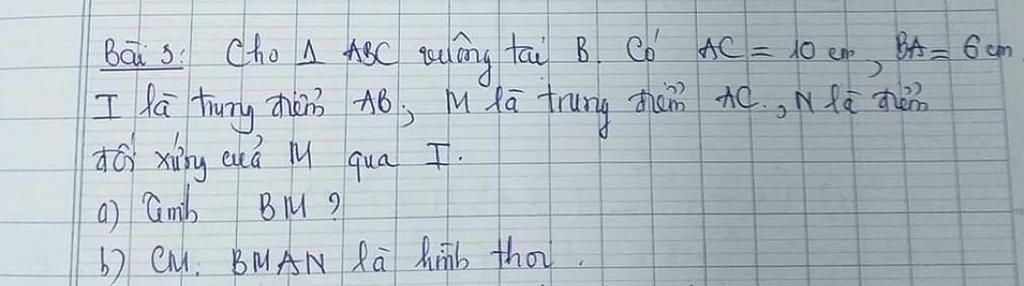 Bài 3: Cho Δ ABC vuông tại B. Có AC = 10 cm, BA = 6 cm
I là trung điểm AB, M là trung điểm AC, N là điểm
đối xứng của M qua I.
a) Tính BM?
b) CM. BMAN là hình thoi.